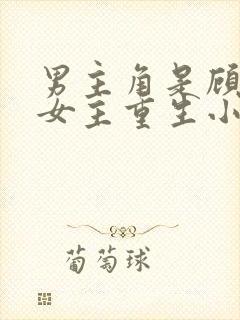 男主角是顾
女主重生小
葡萄球